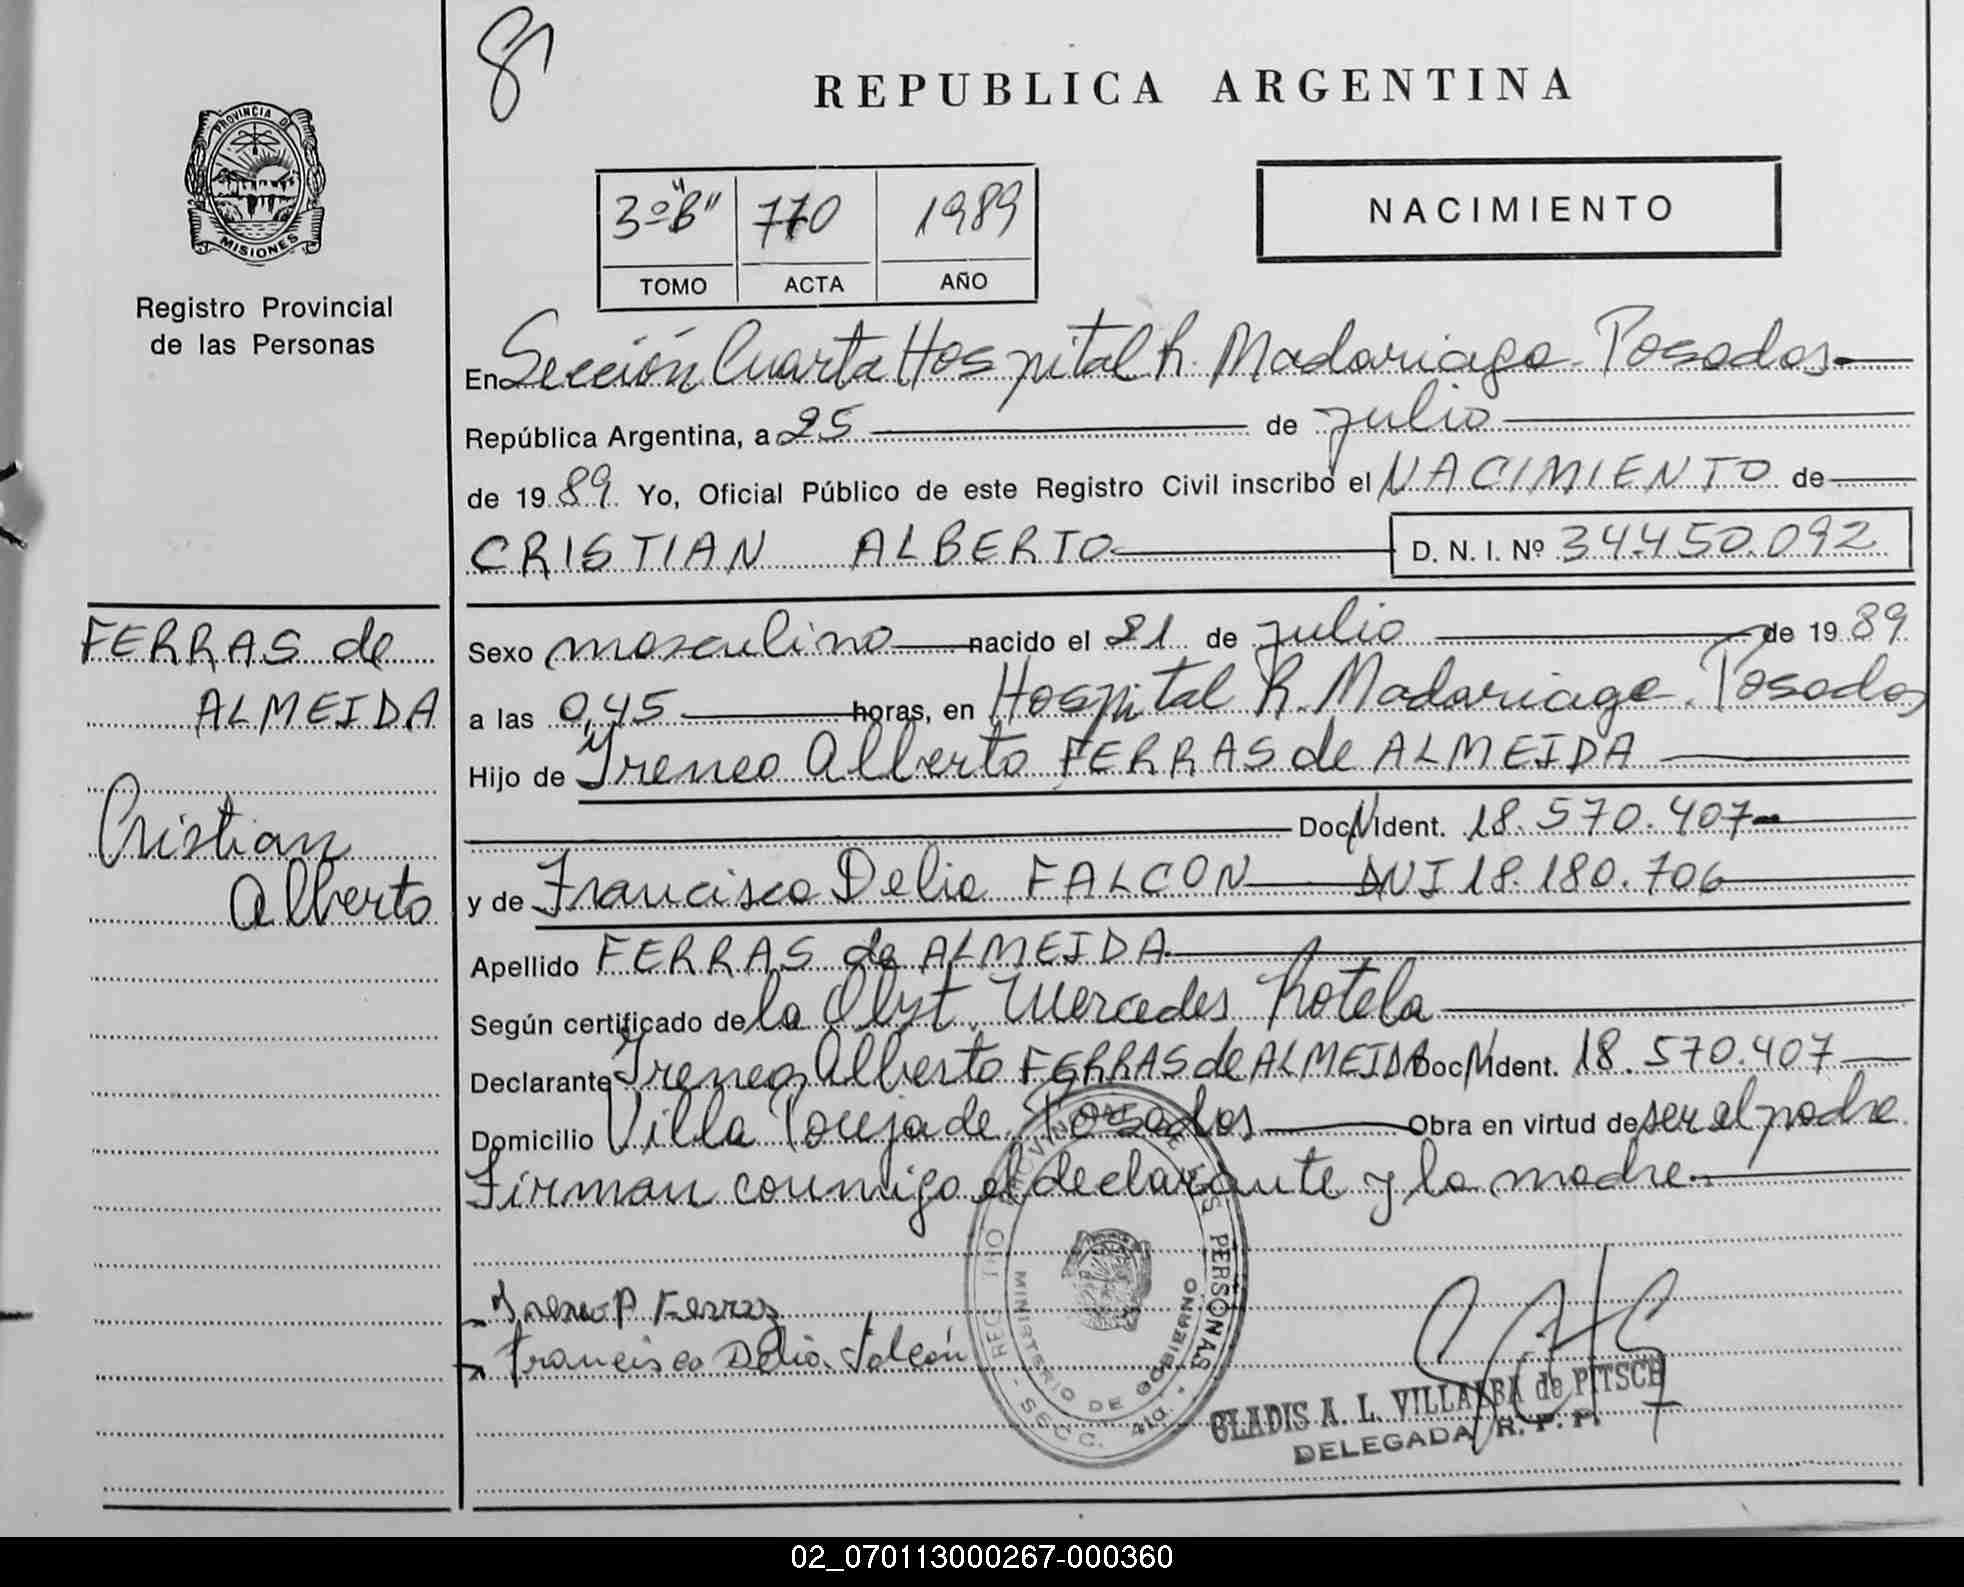 8
REPUBLICA ARGENTINA
PROVINCIA DE
MISIONES
Registro Provincial
de las Personas
3º "B" 770 1989
TOMO ACTA AÑO
NACIMIENTO
En Sección Cuarta Hospital R. Madariaga - Posadas
República Argentina, a 25 de julio
de 1989. Yo, Oficial Público de este Registro Civil inscribo el NACIMIENTO de
CRISTIAN ALBERTO D. N. I. Nº 34.450.092
FERRAS de
ALMEIDA
Cristian
Alberto
Sexo masculino nacido el 21 de julio de 1989
a las 0,45 horas, en Hospital R. Madariaga. Posadas
Hijo de Ireneo Alberto FERRAS de ALMEIDA
Doc. N Ident. 18.570.407
y de Francisca Delia FALCON DNI 18.180.706
Apellido FERRAS de ALMEIDA
Según certificado de la Obst. Mercedes Rotela
Declarante Ireneo Alberto FERRAS de ALMEIDA Doc. N Ident. 18.570.407
Domicilio Villa Poujade. Posadas Obra en virtud de ser el padre
Firman conmigo el declarante y la madre.
Ireneo P Ferraz
Francisca Delia Falcón
PROVINCIAL DE LAS PERSONAS
MINISTERIO DE GOBIERNO
SECC. 4ta.
GLADIS A. L. VILLALBA de PITSCH
DELEGADA R. P. P.
02_070113000267-000360